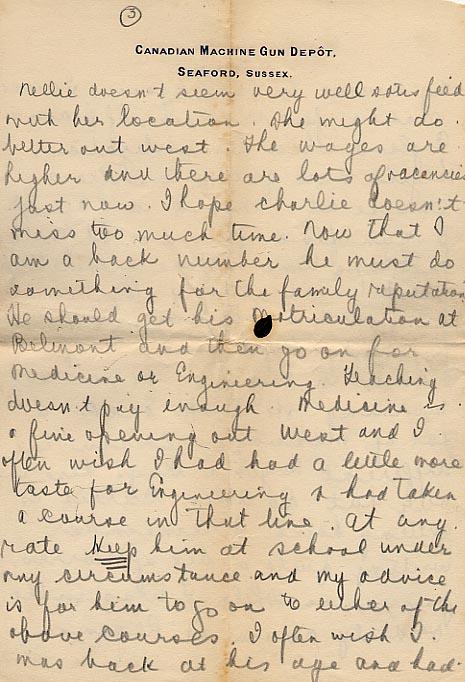 3
CANADIAN MACHINE GUN DEPÔT,
SEAFORD, SUSSEX.
Nellie doesn't seem very well satisfied
with her location. She might do
better out west. The wages are
higher and there are lots of vacancies
just now. I hope Charlie doesn't
miss too much time. Now that I
am a back number he must do
something for the family reputation
He should get his Matriculation at
Belmont and then go on for
Medicine or Engineering. Teaching
doesn't pay enough. Medicine is
a fine opening out west and I
often wish I had had a little more
taste for Engineering & had taken
a course in that line. At any
rate Keep him at school under
any circumstance and my advice
is for him to go on to either of the
above courses. I often wish I
was back at his age and had